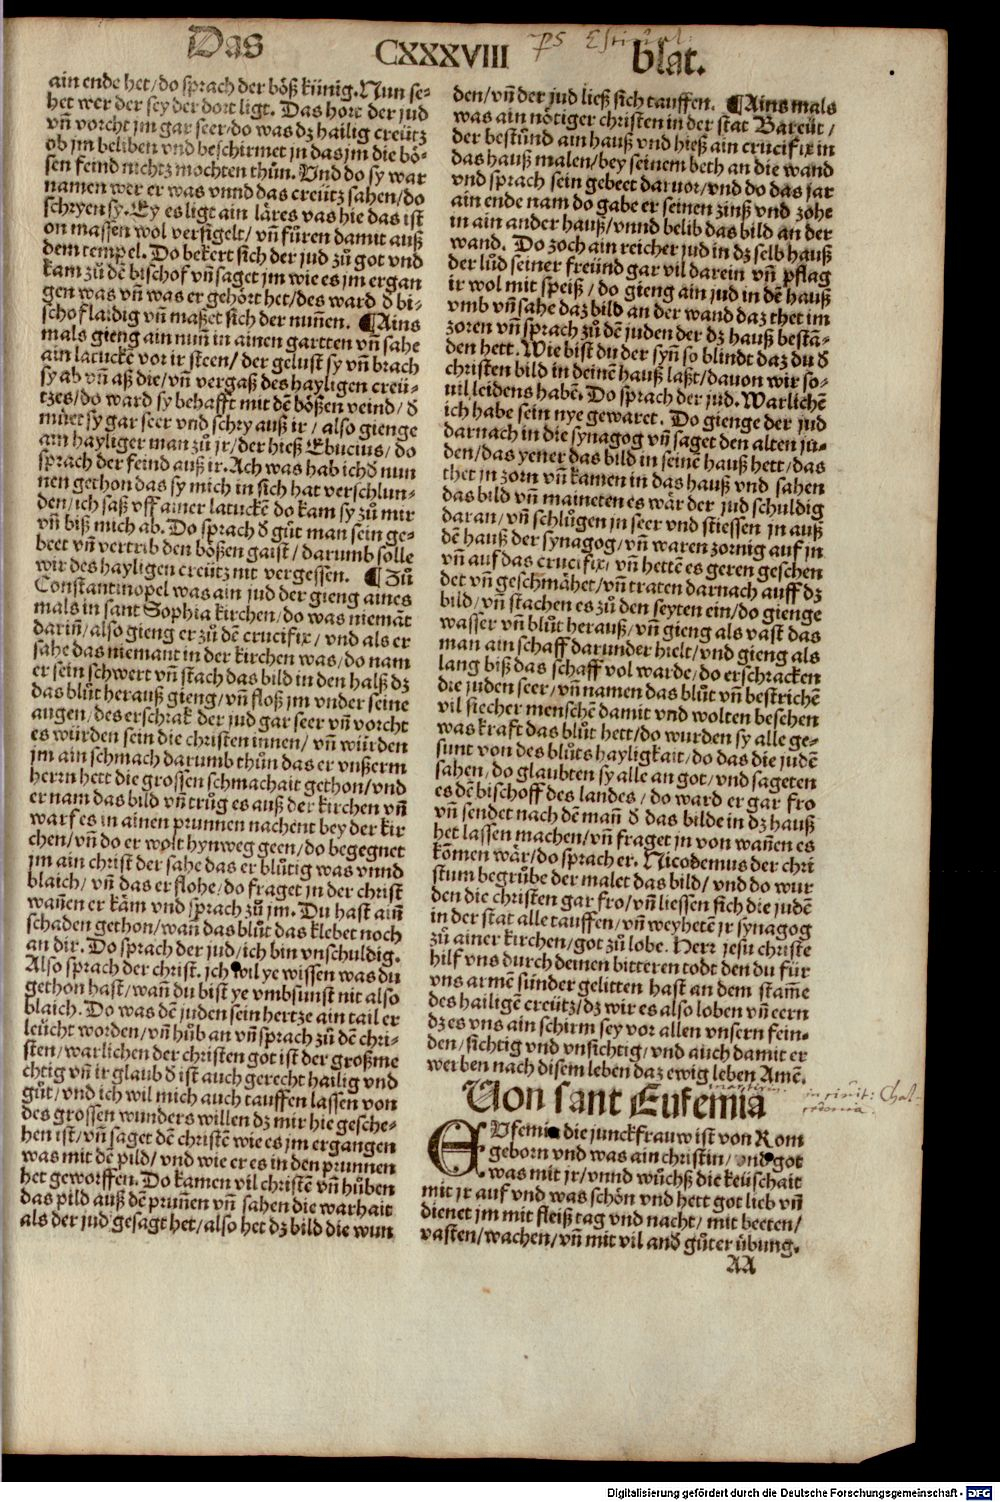 Das CXXXVIII blat.
ps Estiual:
ain ende het/do sprach der böß künig. Nun se-
het wer der sey der dort ligt. Das hort der jud
vñ vorcht jm gar seer/do was dz hailig creütz
ob jm beliben vnd beschirmet jn das jm die bö-
sen feind nichtz mochten thůn. Vnd do sy war
namen wer er was vnnd das creütz sahen/do
schryen sy. Ey es ligt ain läres vas hie das ist
on massen wol versigelt/ vñ fůren damit auß
dem tempel. Do bekert sich der jud zů got vnd
kam zů dē bischof vñ saget jm wie es jm ergan
gen was vñ was er gehört het/des ward d̄ bi-
schof laidig vñ maßet sich der nunnen. ¶ Ains
mals gieng ain nunn in ainen gartten vñ sahe
ain latuckē vor ir steen/ der gelust sy vñ brach
sy ab vñ aß die/vñ vergaß des hayligen creü-
tzes/do ward sy behafft mit dē bößen veind/ d̄
můet sy gar seer vnd schry auß ir/ also gienge
ain hayliger man zů jr/der hieß Ebucius/ do
sprach der feind auß ir. Ach was hab ich d̄ nun
nen gethon das sy mich in sich hat verschlun-
den/ich saß vff ainer latuckē do kam sy zů mir
vñ biß mich ab. Do sprach d̄ gůt man sein ge-
beet vñ vertrib den bößen gaist/ darumb solle
wir des hayligen creütz nit vergessen. ¶ Zů
Constantinopel was ain jud der gieng aines
mals in sant Sophia kirchen/do was niemāt
darin̄/also gieng er zů dē crucifix/ vnd als er
sahe das niemant in der kirchen was/do nam
er sein schwert vñ stach das bild in den halß dz
das blůt herauß gieng/vñ floß jm vnder seine
augen/des erschrak der jud gar seer vñ vorcht
es würden sein die christen innen/ vñ würden
jm ain schmach darumb thůn das er vnßerm
herrn hett die grossen schmachait gethon/vnd
er nam das bild vñ trůg es auß der kirchen vñ
warf es in ainen prunnen nachent bey der kir
chen/vñ do er wolt hynweg geen/do begegnet
jm ain christ der sahe das er blůtig was vnnd
blaich/ vñ das er flohe/do fraget jn der christ
wañen er käm vnd sprach zů jm. Du hast aiñ
schaden gethon/wañ das blůt das klebet noch
an dir. Do sprach der jud/ich bin vnschuldig.
Also sprach der christ. ich wil ye wissen was du
gethon hast/wañ du bist ye vmbsunst nit also
blaich. Do was dē juden sein hertze ain tail er
leücht worden/vñ hůb an vñ sprach zů dē chri-
sten/warlichen der christen got ist der großme
chtig vñ ir glaub d̄ ist auch gerecht hailig vnd
gůt/vnd ich wil mich auch tauffen lassen von
des grossen wunders willen dz mir hie gesche-
hen ist/vñ saget dē christē wie es jm ergangen
was mit dē pild/ vnd wie er es in den prunnen
het geworffen. Do kamen vil christē vñ hůben
das pild auß dē pruñen vñ sahen die warhait
als der jud gesagt het/also het dz bild die wun
den/vñ der jud ließ sich tauffen. ¶ Ains mals
was ain nötiger christen in der stat Bareüt/
der bestůnd ain hauß vnd hieß ain crucifix in
das hauß malen/bey seinem beth an die wand
vnd sprach sein gebeet daruor/vnd do das jar
ain ende nam do gabe er seinen zinß vnd zohe
in ain ander hauß/vnnd belib das bild an der
wand. Do zoch ain reicher jud in dz selb hauß
der lůd seiner freünd gar vil darein vñ pflag
ir wol mit speiß/ do gieng ain jud in dē hauß
vmb vñ sahe daz bild an der wand daz thet im
zoren vñ sprach zů dē juden der dz hauß bestā-
den hett. Wie bist du der syñ so blindt daz du d̄
christen bild in deinē hauß laßt/dauon wir so-
uil leidens habē. Do sprach der jud. Warlichē
ich habe sein nye gewaret. Do gienge der jud
darnach in die synagog vñ saget den alten ju-
den/das yener das bild in seinē hauß hett/das
thet jn zorn vñ kamen in das hauß vnd sahen
das bild vñ maineten es wär der jud schuldig
daran/vñ schlůgen jn seer vnd stiessen jn auß
dē hauß der synagog/vñ waren zornig auf jn
vñ auf das crucifix/ vñ hettē es geren geschen
det vñ geschmähet/vñ traten darnach auff dz
bild/vñ stachen es zů den seyten ein/do gienge
wasser vñ blůt herauß/vñ gieng als vast das
man ain schaff darunder hielt/vnd gieng als
lang biß das schaff vol warde/do erschracken
die juden seer/vñ namen das blůt vñ bestrichē
vil siecher menschē damit vnd wolten besehen
was kraft das blůt hett/do wurden sy alle ge-
sunt von des blůts hayligkait/do das die judē
sahen/do glaubten sy alle an got/vnd sageten
es dē bischoff des landes/ do ward er gar fro
vñ sendet nach dē mañ d̄ das bilde in dz hauß
het lassen machen/vñ fraget jn von wañen es
kōmen wär/do sprach er. Nicodemus der chri
stum begrůbe der malet das bild/ vnd do wur
den die christen gar fro/vñ liessen sich die judē
in der stat alle tauffen/vñ weyhetē jr synagog
zů ainer kirchen/got zů lobe. Herr jesu christe
hilf vns durch deinen bitteren todt den du für
vns armē sünder gelitten hast an dem stam̄e
des hailigē creütz/dz wir es also loben vñ eern
dz es vns ain schirm sey vor allen vnsern fein-
den/sichtig vnd vnsichtig/vnd auch damit er
werben nach disem leben daz ewig leben Amē.
Von sant Eufemia
EVfemia die junckfrauw ist von Rom
geborn vnd was ain christin/ vnd got
was mit jr/vnnd wůchß die keüschait
mit jr auf vnd was schön vnd hett got lieb vñ
dienet jm mit fleiß tag vnd nacht/ mit beeten/
vasten/wachen/vñ mit vil and̄ gůter übung.
AA
Digitalisierung gefördert durch die Deutsche Forschungsgemeinschaft - DFG